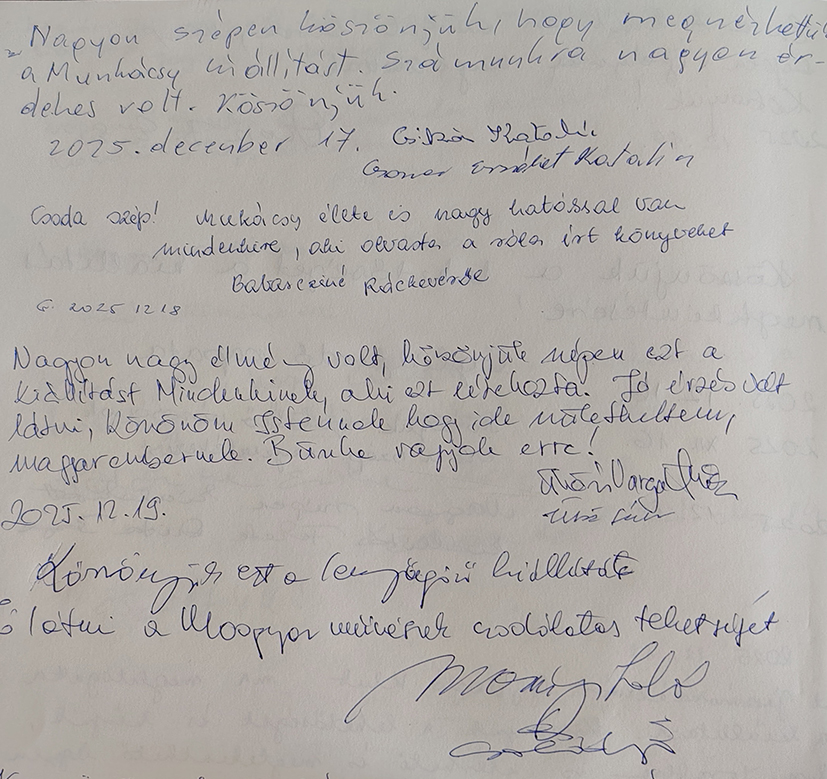 Nagyon szépen köszönjük, hogy megnézhettük
a Munkácsy kiállítást. Számunkra nagyon ér-
dekes volt. Köszönjük.
2025. december 17. Katalin
Erzsébet Katalin
Csoda szép! Mukácsy élete is nagy hatással van
mindenkire, aki olvasta a róla írt könyveket
Ráckevéről
2025 12 18
Nagyon nagy élmény volt, köszönjük szépen ezt a
kiállítást Mindenkinek, aki ezt létrehozta. Jó érzés volt
látni, köszönöm Istennek hogy ide születhettem,
magyarembernek. Büszke vagyok erre!
Varga
2025.12.19.
Köszönjük ezt a lenyűgöző kiállítást
Jó látni a Magyar művészek csodálatos tehetségét